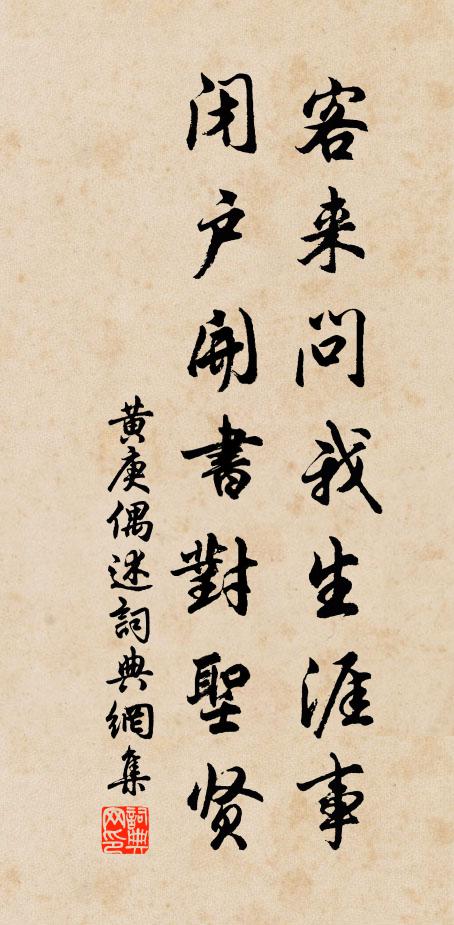 客来问我生涯事
闭户開書對聖贤
黄庚偶述詞典網集
詞典网印